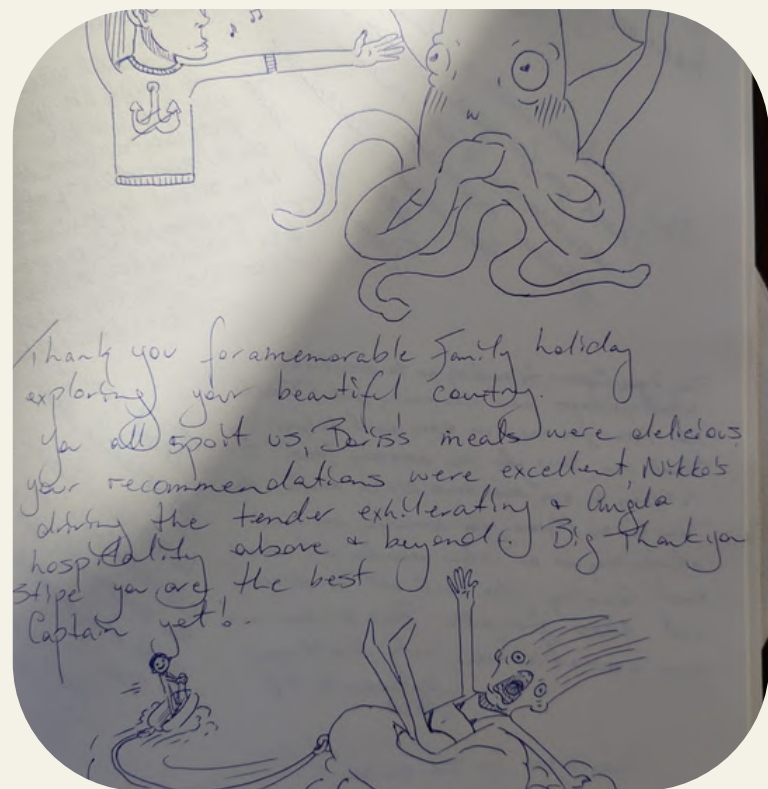 Thank you for a memorable family holiday
exploring your beautiful country.
You all spoit us, Boris's meals were delicious,
your recommendations were excellent, Nikko's
driving the tender exhilerating & Angela
hospitality above & beyond. Big Thank you
Stipe you are the best
Captain yet!